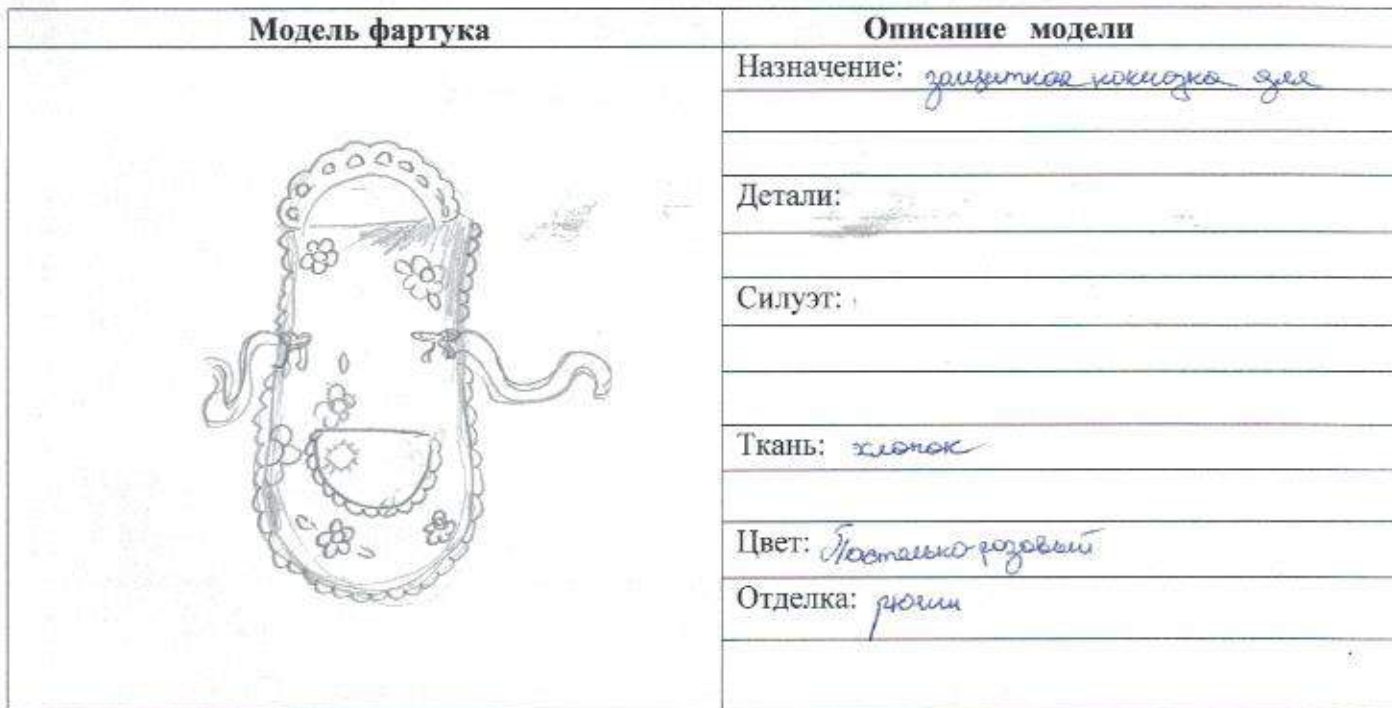 Модель фартука
Описание модели
Назначение: защитная накидка для
Детали:
Силуэт:
Ткань: хлопок
Цвет: Пастельно-розовый
Отделка: рюши